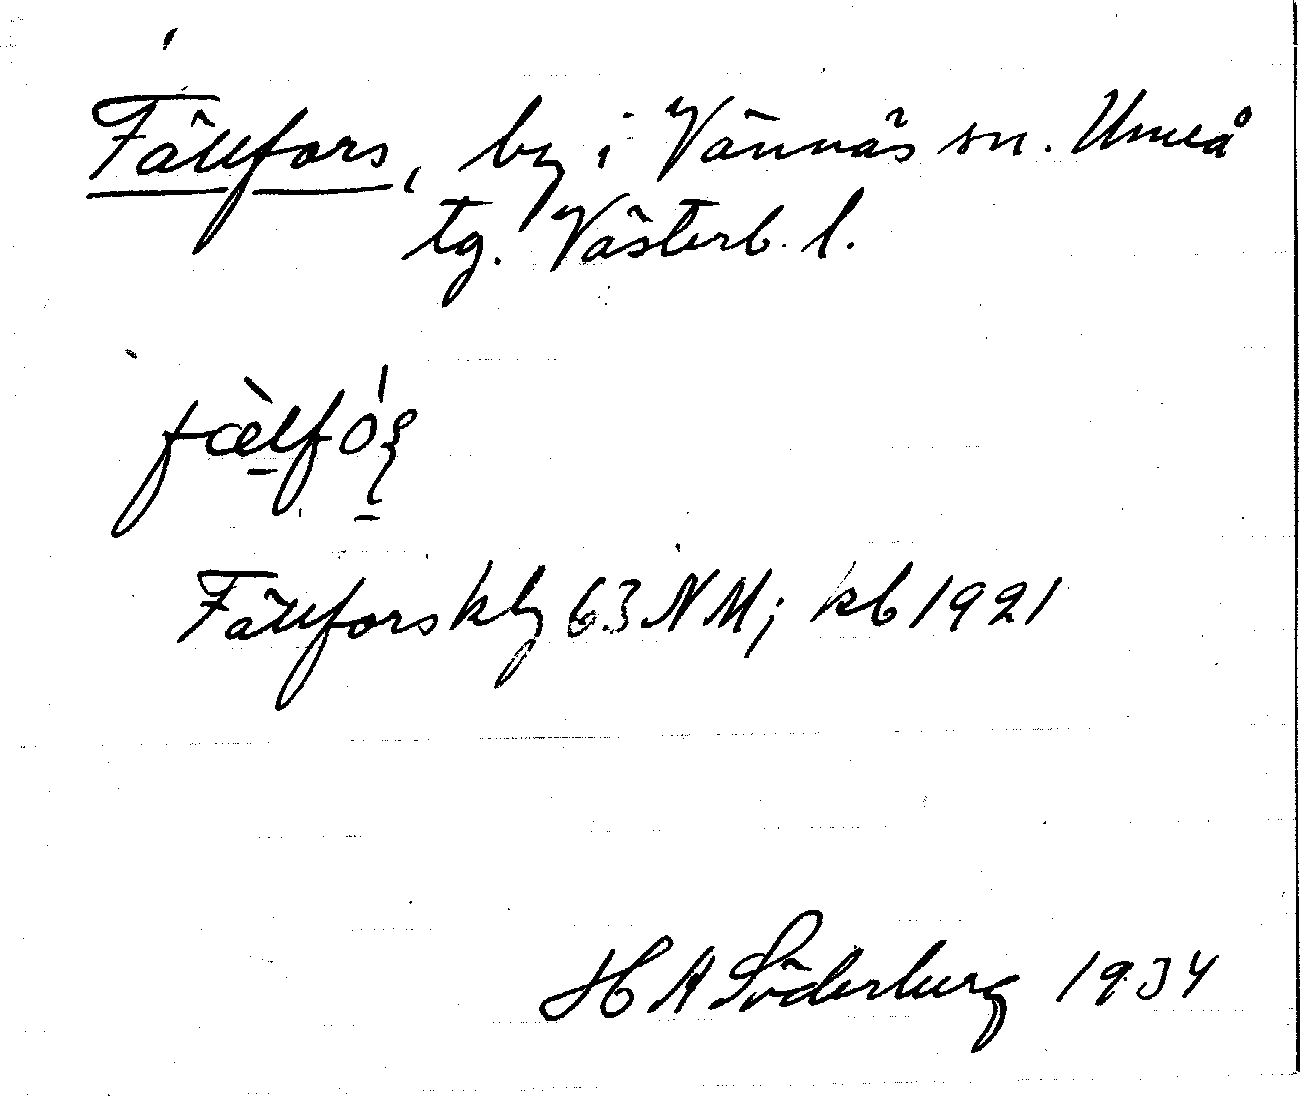 Fällfors, by i Vännäs sn. Umeå
tg. Västerb. l.
Fällfors kby 63 NM; kb 1921
H A Söderberg 1934